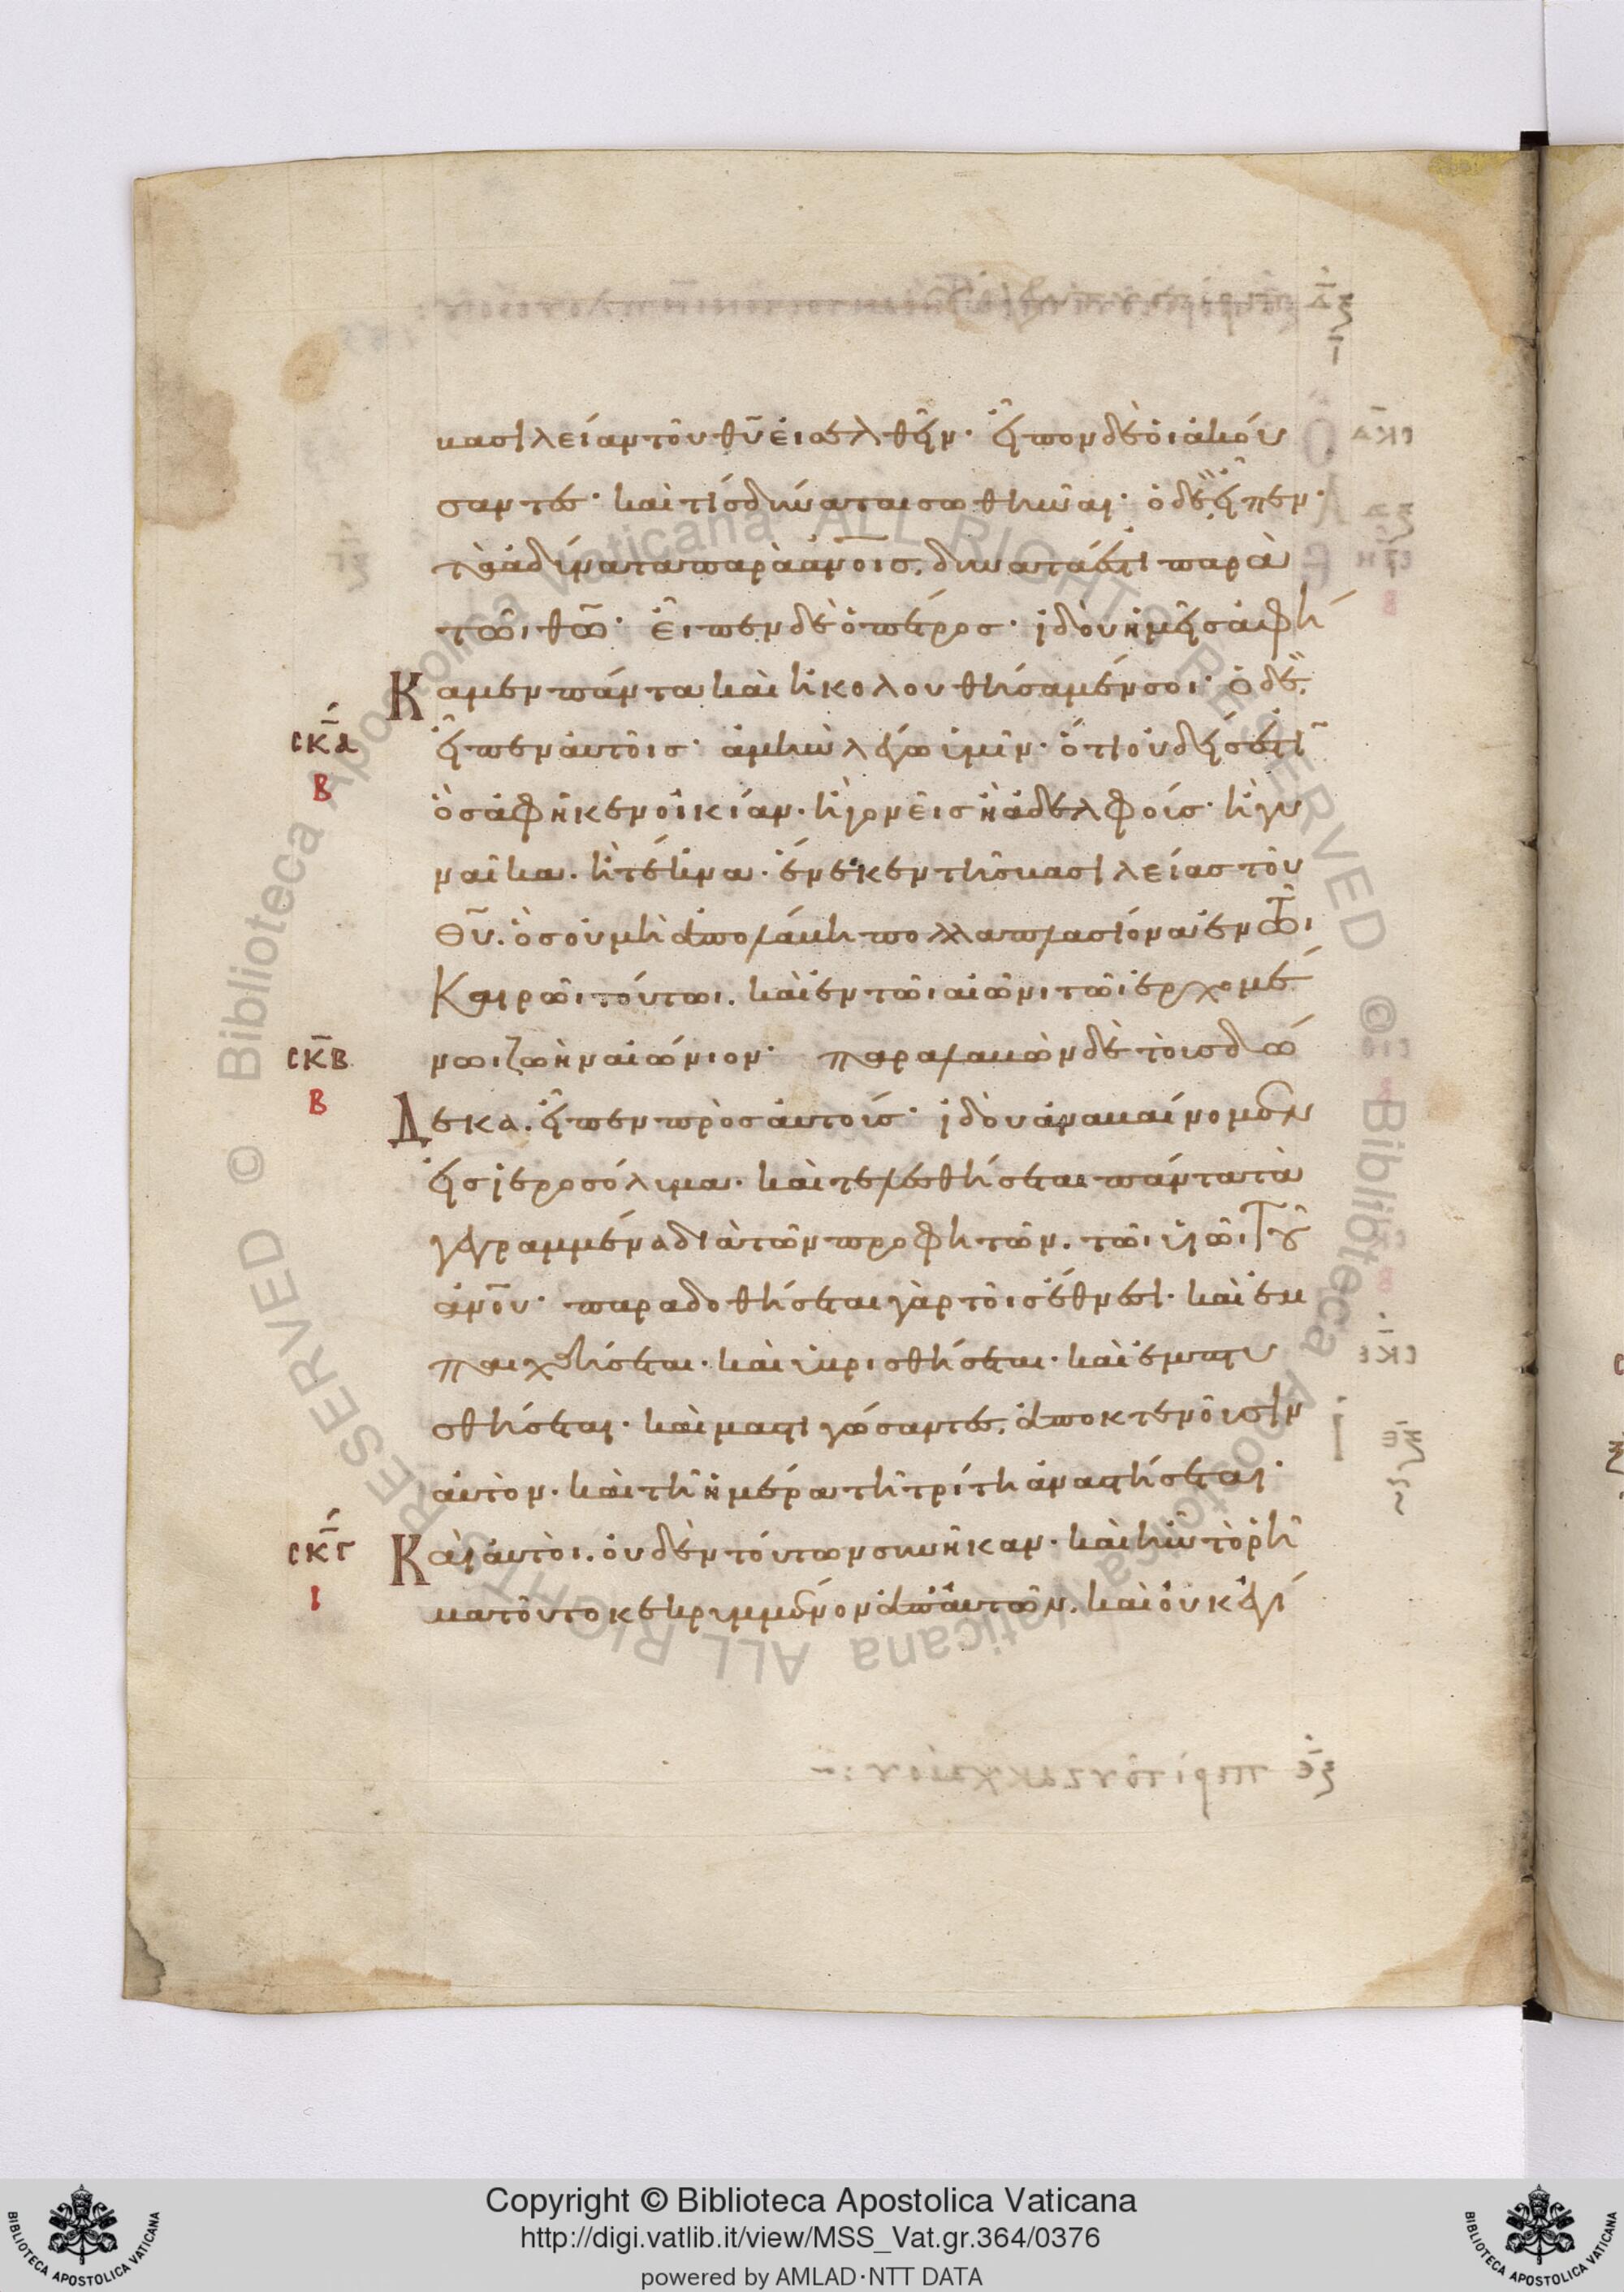 βασιλείαν τοῦ θῦ εἰσελθεῖν· εἶπον δὲ οἱ ἀκού
σαντες· καὶ τίς δύναται σωθῆναι· ὁ δὲ εἶπεν·
τὰ ἀδύνατα παρὰ ἀνοις. δυνατά ἐστι παρὰ
τῶι θῶ· εἶπεν δὲ ὁ πέτρος· ἰδοὺ ἡμεῖς ἀφή
Καμεν πάντα καὶ ἠκολουθήσαμέν σοι· ὁ δὲ
σκα εἶπεν αὐτοῖς· ἀμὴν λέγω ὑμῖν· ὅτι οὐδείς ἐστι
β
ὃς ἀφῆκεν οἰκίαν. ἢ γονεῖς ἢ ἀδελφούς· ἢ γυ
ναῖκα. ἢ τέκνα. ἕνεκεν τῆς βασιλείας τοῦ
Θῦ. ὃς οὐ μὴ ἀπολάβη πολλαπλασίονα ἐν τῶι
Καιρῶι τούτωι. καὶ ἐν τῶι αἰῶνι τῶι ἐρχομέ
σκβ νωι ζωὴν αἰώνιον· παραλαβὼν δὲ τοὺς δώ
β
Δεκα. εἶπεν πρὸς αὐτούς· ἰδοὺ ἀναβαίνομεν
εἰς ἱεροσόλυμα. καὶ τελεσθήσεται πάντα τὰ
γεγραμμένα διὰ τῶν προφητῶν. τῶι υἱῶι τοῦ
ἀνου· παραδοθήσεται γὰρ τοῖς ἔθνεσι. καὶ ἐμ
παιχθήσεται. καὶ ὑβρισθήσεται. καὶ ἐμπτυ
σθήσεται. καὶ μαστιγώσαντες. ἀποκτενοῦσιν
αὐτὸν. καὶ τῆ ἡμέρα τῆ τρίτη ἀναστήσεται·
σκγ Καὶ αὐτοὶ. οὐδὲν τούτων συνῆκαν. καὶ ἦν τὸ ρῆ
ι
μα τοῦτο κεκρυμμένον ἀπ' αὐτῶν. καὶ οὐκ ἐγί
Copyright © Biblioteca Apostolica Vaticana
http://digi.vatlib.it/view/MSS_Vat.gr.364/0376
powered by AMLAD·NTT DATA